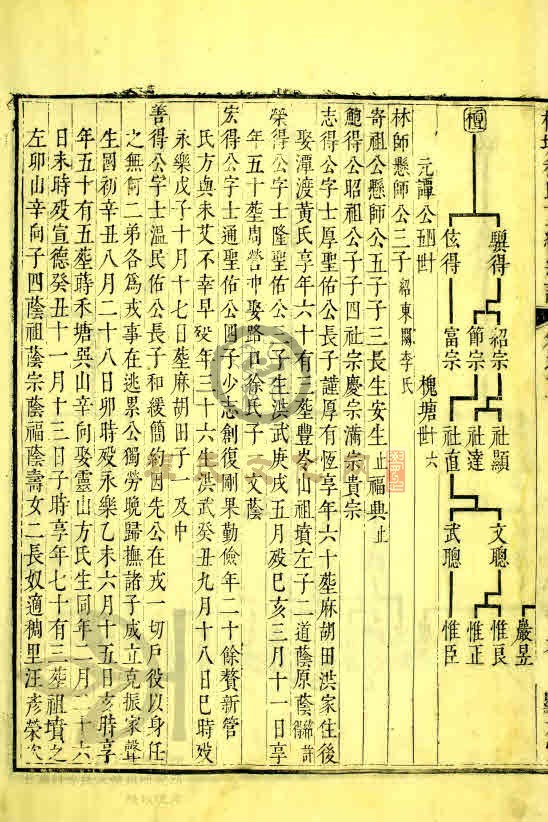 檀
驥得
伭得
紹宗
節宗
富宗
社顯
社達
社直
文聰
武聰
巖昱
惟良
惟正
惟臣
元譚公 世 槐塘世六
林師懸師公三子紹東關李氏
寄祖公懸師公五子子三長生安生止福典止
鮑得公昭祖公子子四社宗慶宗滿宗貴宗
志得公字士厚聖佑公長子謹厚有恆享年六十塟麻胡田洪家住後
娶潭渡黃氏享年六十有 塟豐岑山祖墳左子二道蔭原蔭
榮得公字士隆聖佑公 子生洪武庚戌五月殁巳亥三月十一日享
年五十塟周營冲娶路口徐氏子 文蔭
宏得公字士通聖佑公四子少志創復剛果勤儉年二十餘贅新管
氏方與未艾不幸早殁年三十六生洪武癸丑九月十八日巳時殁
永樂戊子十月十七日塟麻胡田子一及中
善得公字士溫民佑公長子和緩簡約因先公在戎一切戶役以身任
之無何二弟各爲戎事在逃累公獨勞晩歸撫諸子成立克振家聲
生國初辛丑八月二十八日卯時殁永樂乙未六月十五日亥時享
年五十有五塟蒔禾塘㚷山辛向娶靈山方氏生同年二月二十六
日未時殁宣德癸丑十一月十三日子時享年七十有三塟祖墳之
左卯山辛向子四蔭祖蔭宗蔭福蔭壽女二長奴適稠里汪彥榮次